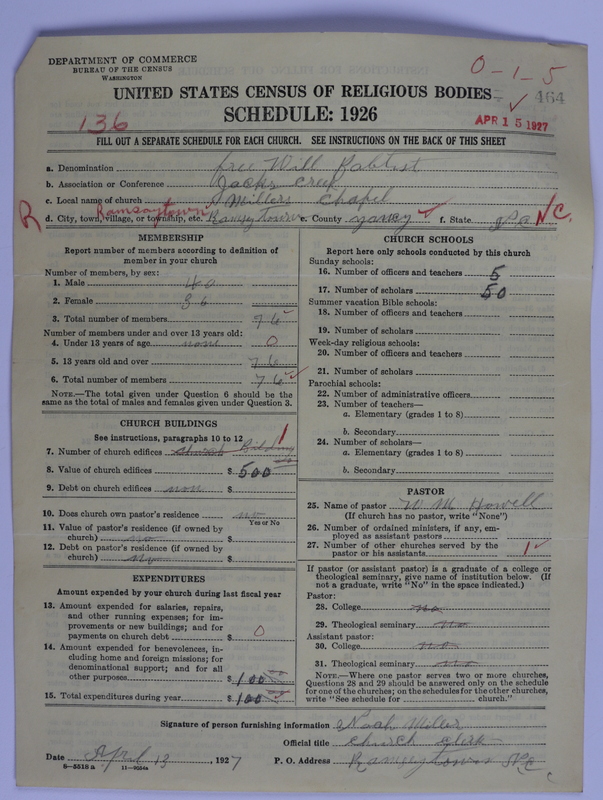 DEPARTMENT OF COMMERCE
BUREAU OF THE CENSUS
WASHINGTON
0-1-5
464
UNITED STATES CENSUS OF RELIGIOUS BODIES
SCHEDULE: 1926
136
APR 15 1927
FILL OUT A SEPARATE SCHEDULE FOR EACH CHURCH. SEE INSTRUCTIONS ON THE BACK OF THIS SHEET
a. Denomination Free Will Babtist
b. Association or Conference Jacks Creek
c. Local name of church Millers Chapel
R Ramsaytown
d. City, town, village, or township, etc. Ramseytown e. County Yancy f. State N.C.
MEMBERSHIP
Report number of members according to definition of
member in your church
Number of members, by sex:
1. Male 40
2. Female 36
3. Total number of members 76
Number of members under and over 13 years old:
4. Under 13 years of age none 0
5. 13 years old and over 76
6. Total number of members 76
NOTE.—The total given under Question 6 should be the
same as the total of males and females given under Question 3.
CHURCH BUILDINGS
See instructions, paragraphs 10 to 12
7. Number of church edifices Church Building 1
8. Value of church edifices $ 500
9. Debt on church edifices non $
10. Does church own pastor's residence no
Yes or No
11. Value of pastor's residence (if owned by
church) no $
12. Debt on pastor's residence (if owned by
church) no $
EXPENDITURES
Amount expended by your church during last fiscal year
13. Amount expended for salaries, repairs,
and other running expenses; for im-
provements or new buildings; and for
payments on church debt $ 0
14. Amount expended for benevolences, in-
cluding home and foreign missions; for
denominational support; and for all
other purposes $ 100
15. Total expenditures during year $ 100
CHURCH SCHOOLS
Report here only schools conducted by this church
Sunday schools:
16. Number of officers and teachers 5
17. Number of scholars 50
Summer vacation Bible schools:
18. Number of officers and teachers
19. Number of scholars
Week-day religious schools:
20. Number of officers and teachers
21. Number of scholars
Parochial schools:
22. Number of administrative officers
23. Number of teachers—
a. Elementary (grades 1 to 8)
b. Secondary
24. Number of scholars—
a. Elementary (grades 1 to 8)
b. Secondary
PASTOR
25. Name of pastor W M Howell
(If church has no pastor, write "None")
26. Number of ordained ministers, if any, em-
ployed as assistant pastors
27. Number of other churches served by the
pastor or his assistants 1
If pastor (or assistant pastor) is a graduate of a college or
theological seminary, give name of institution below. (If
not a graduate, write "No" in the space indicated.)
Pastor:
28. College no
29. Theological seminary no
Assistant pastor:
30. College no
31. Theological seminary no
NOTE.—Where one pastor serves two or more churches,
Questions 28 and 29 should be answered only on the schedule
for one of the churches; on the schedules for the other churches,
write "See schedule for church."
Signature of person furnishing information Noah Miller
Official title church clerk
Date April 13, 1927 P. O. Address Ramseytown N.C.
8-5518 a 11-9054a